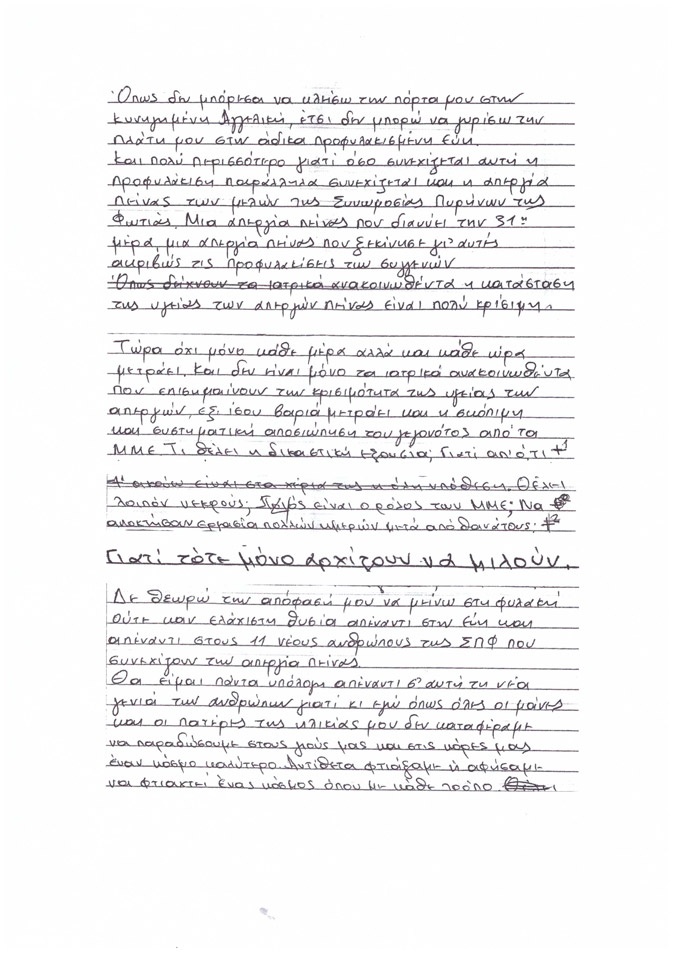 Όπως δεν μπόρεσα να κλείσω την πόρτα μου στην
κυνηγημένη Αγγελική, έτσι δεν μπορώ να γυρίσω την
πλάτη μου στην άδικα προφυλακισμένη Εύη.
Και πολύ περισσότερο γιατί όσο συνεχίζεται αυτή η
προφυλάκιση παράλληλα συνεχίζεται και η απεργία
πείνας των μελών της Συνωμοσίας Πυρήνων της
Φωτιάς. Μια απεργία πείνας που διανύει την 31η
μέρα, μια απεργία πείνας που ξεκίνησε γι' αυτές
ακριβώς τις προφυλακίσεις των συγγενών
Όπως δείχνουν τα ιατρικά ανακοινωθέντα η κατάσταση
της υγείας των απεργών πείνας είναι πολύ κρίσιμη.
Τώρα όχι μόνο κάθε μέρα αλλά και κάθε ώρα
μετράει. Και δεν είναι μόνο τα ιατρικά ανακοινωθέντα
που επισημαίνουν την κρισιμότητα της υγείας των
απεργών, εξ ίσου βαριά μετράει και η σκόπιμη
και συστηματική αποσιώπηση του γεγονότος από τα
ΜΜΕ. Τι θέλει η δικαστική εξουσία; Γιατί απ' ό,τι +1
είναι στα χέρια της η όλη υπόθεση. Θέλει
λοιπόν νεκρούς; Ποιός είναι ο ρόλος των ΜΜΕ; Να
αποκτήσουν εργασία πολλών ημερών μετά από θανάτους; +2
Γιατί τότε μόνο αρχίζουν να μιλούν.
Δε θεωρώ την απόφασή μου να μείνω στη φυλακή
ούτε καν ελάχιστη θυσία απέναντι στην Εύη και
απέναντι στους 11 νέους ανθρώπους της ΣΠΦ που
συνεχίζουν την απεργία πείνας.
Θα είμαι πάντα υπόλογη απέναντι σ' αυτή τη νέα
γενιά των ανθρώπων γιατί κι εγώ όπως όλες οι μάνες
και οι πατέρες της ηλικίας μου δεν καταφέραμε
να παραδώσουμε στους γιούς μας και στις κόρες μας
έναν κόσμο καλύτερο. Αντίθετα φτιάξαμε ή αφήσαμε
να φτιαχτεί ένας κόσμος όπου με κάθε τρόπο